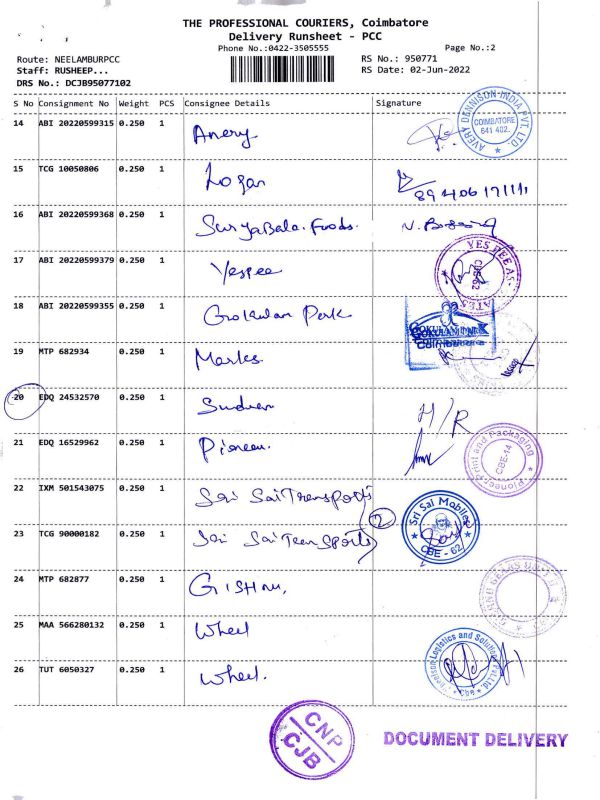 THE PROFESSIONAL COURIERS, Coimbatore
Delivery Runsheet - PCC
Phone No.:0422-3505555 Page No.:2
Route: NEELAMBURPCC RS No.: 950771
Staff: RUSHEEP... RS Date: 02-Jun-2022
DRS No.: DCJB95077102
S No Consignment No Weight PCS Consignee Details Signature
14 ABI 20220599315 0.250 1 Avery
AVERY DENNISON INDIA PVT. LTD. COIMBATORE 641 402.
15 TCG 10050806 0.250 1 Logan
16 ABI 20220599368 0.250 1 SuryaBala. Foods.
17 ABI 20220599379 0.250 1 Yespee
YES PEE CBE-62
18 ABI 20220599355 0.250 1 Gokulam Park
GOKULAM PARK Coimbatore
19 MTP 682934 0.250 1 Marks
20 EDQ 24532570 0.250 1 H/R
21 EDQ 16529962 0.250 1 Pioneer
Pioneer Print and Packaging CBE-14
22 IXM 501543075 0.250 1 Sri Sai Transports
2
Sri Sai Mobiles CBE - 62
23 TCG 90000182 0.250 1 Sri Sai Transports
24 MTP 682877 0.250 1
25 MAA 566280132 0.250 1 Wheel
26 TUT 6050327 0.250 1 Wheel.
Logistics and Solutions Pvt Ltd. Cbe
CNP CJB
DOCUMENT DELIVERY